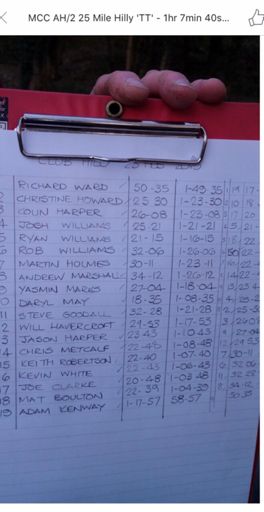 MCC AH/2 25 Mile Hilly 'TT' - 1hr 7min 40s...
RICHARD WARD 50-35 1-49 35 19 17-
CHRISTINE HOWARD 25 30 1-23-30 10 18
COLIN HARPER 26-08 1-23-08 17 20
JOSH WILLIAMS 25-21 1-21-21 21
RYAN WILLIAMS 21-15 1-16-15 22
ROB WILLIAMS 32-06 1-26-06 22
MARTIN HOLMES 30-11 1-23-11 22
ANDREW MARSHALL 34-12 1-26-12 22
YASMIN MARKS 27-04 1-18-04 23
10 DARYL MAY 18-35 1-08-35 25-2
11 STEVE GOODALL 32-28 1-21-28 25-30
2 WILL HAVERCROFT 29-53 1-17-53
3 JASON HARPER 23 43 1-10 43 27-04
4 CHRIS METCALF 22-48 1-08-48 29 53
15 KEITH ROBERTSON 22-40 1-07 40 30-11
6 KEVIN WHITE 22-43 1-06-43 32 06
7 JOE CLARKE 20-48 1-03 48 32 28
8 MAT BOULTON 22-39 1-04-39 34-12
19 ADAM KENWAY 1-17-57 58-57 50 35